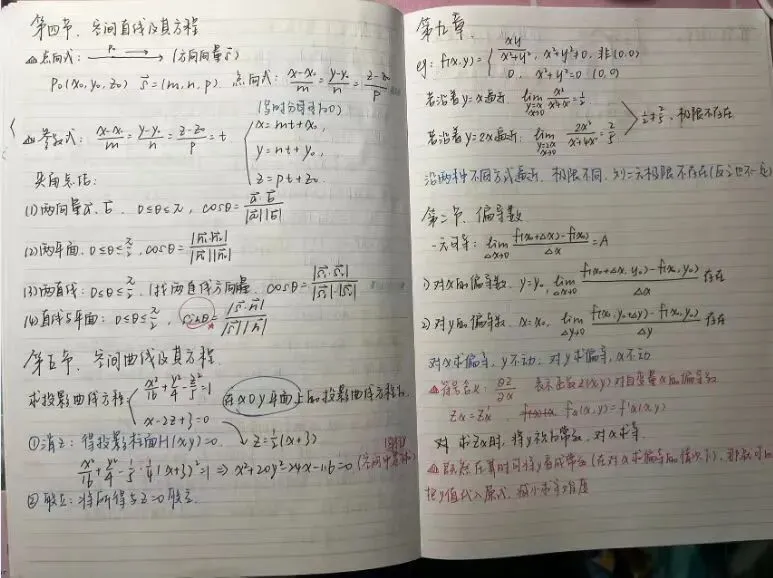 第四节、空间直线及其方程
△点向式: P₀ (方向向量s⃗)
P₀(x₀, y₀, z₀) s⃗=(m, n, p). 点向式: (x-x₀)/m=(y-y₀)/n=(z-z₀)/p
△参数式: (x-x₀)/m=(y-y₀)/n=(z-z₀)/p=t
{ x=mt+x₀,
y=nt+y₀,
z=pt+z₀
夹角总结:
(1)两向量a⃗, b⃗, 0≤θ≤π, cosθ=a⃗·b⃗/|a⃗||b⃗|
(2)两平面, 0≤θ≤π/2, cosθ=|n⃗₁·n⃗₂|/|n⃗₁||n⃗₂|
(3)两直线: 0≤θ≤π/2, (找两直线方向量, cosθ=|s⃗₁·s⃗₂|/|s⃗₁|·|s⃗₂|
(4)直线与平面: 0≤θ≤π/2, sinθ=|s⃗·n⃗|/|s⃗||n⃗|
第五节、空间曲线及其方程
求投影曲线方程 { x²/16+y²/4-z²/5=1
x-2z+3=0
在xOy平面上的投影曲线方程
①消z: 得投影柱面H(x,y)=0. z=½(x+3)
x²/16+y²/4-1/5·1/4(x+3)²=1 ⇒ x²+20y²-24x-116=0
②联立: 将所得与z=0联立.
第九章
eg: f(x,y)={ xy/(x²+y²), x²+y²≠0, 非(0,0)
0, x²+y²=0 (0,0)
若沿着y=x逼近, lim y=x x→0 x²/(x²+x²)=1/2
若沿着y=2x逼近, lim y=2x x→0 2x²/(x²+4x²)=2/5
1/2≠2/5, 极限不存在
沿两种不同方式逼近, 极限不同, 则二元极限不存在
第二节、偏导数
一元可导: lim Δx→0 (f(x₀+Δx)-f(x₀))/Δx=A
1)对x的偏导数. y=y₀, lim Δx→0 (f(x₀+Δx, y₀)-f(x₀, y₀))/Δx 存在
2)对y的偏导数. x=x₀, lim Δy→0 (f(x₀, y₀+Δy)-f(x₀, y₀))/Δy 存在
对x求偏导, y不动, 对y求偏导, x不动
△符号含义: ∂z/∂x 表示函数z(x,y)对自变量x的偏导数
Zx=Z'x, fx(x,y)=f'x(x,y)
对 求Zx时, 将y视为常数, 对x求导.
把y值代入原式, 减小求导难度